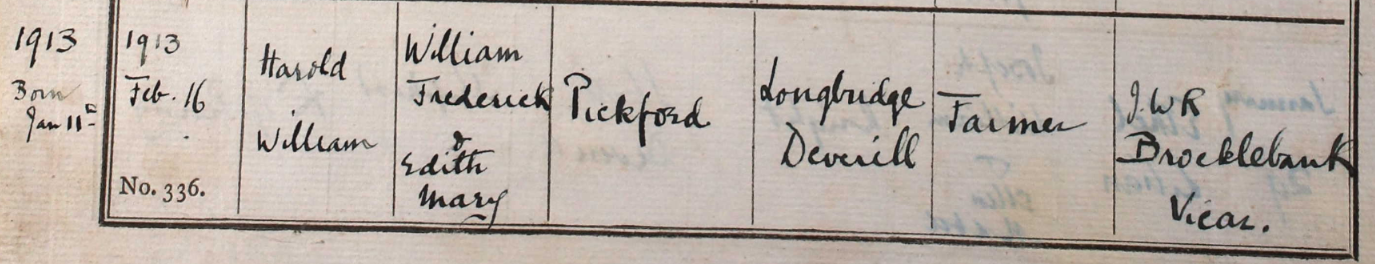 1913
Born
Jan 11th
1913
Feb. 16
No. 336.
Harold
William
William
Frederick
&
Edith
Mary
Pickford
Longbridge
Deverill
Farmer
J.W R
Brocklebank
Vicar.